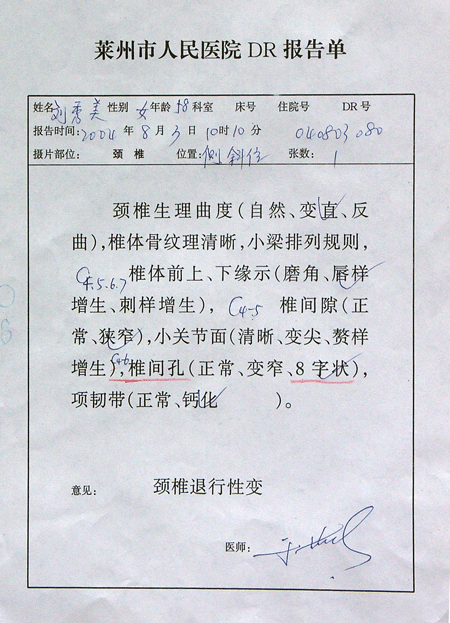 莱州市人民医院 DR 报告单
姓名 刘秀美 性别 女 年龄 58 科室 床号 住院号 DR 号
报告时间: 2004 年 8 月 3 日 10 时 10 分 040803080
摄片部位: 颈 椎 位置: 侧斜位 张数: 1
颈椎生理曲度(自然、变直、反
曲),椎体骨纹理清晰,小梁排列规则,
C4.5.6.7 椎体前上、下缘示(磨角、唇样
增生、刺样增生), C4-5 椎间隙(正
常、狭窄),小关节面(清晰、变尖、赘样
增生),C4-6椎间孔(正常、变窄、8 字状),
项韧带(正常、钙化 )。
意见: 颈椎退行性变
医师: